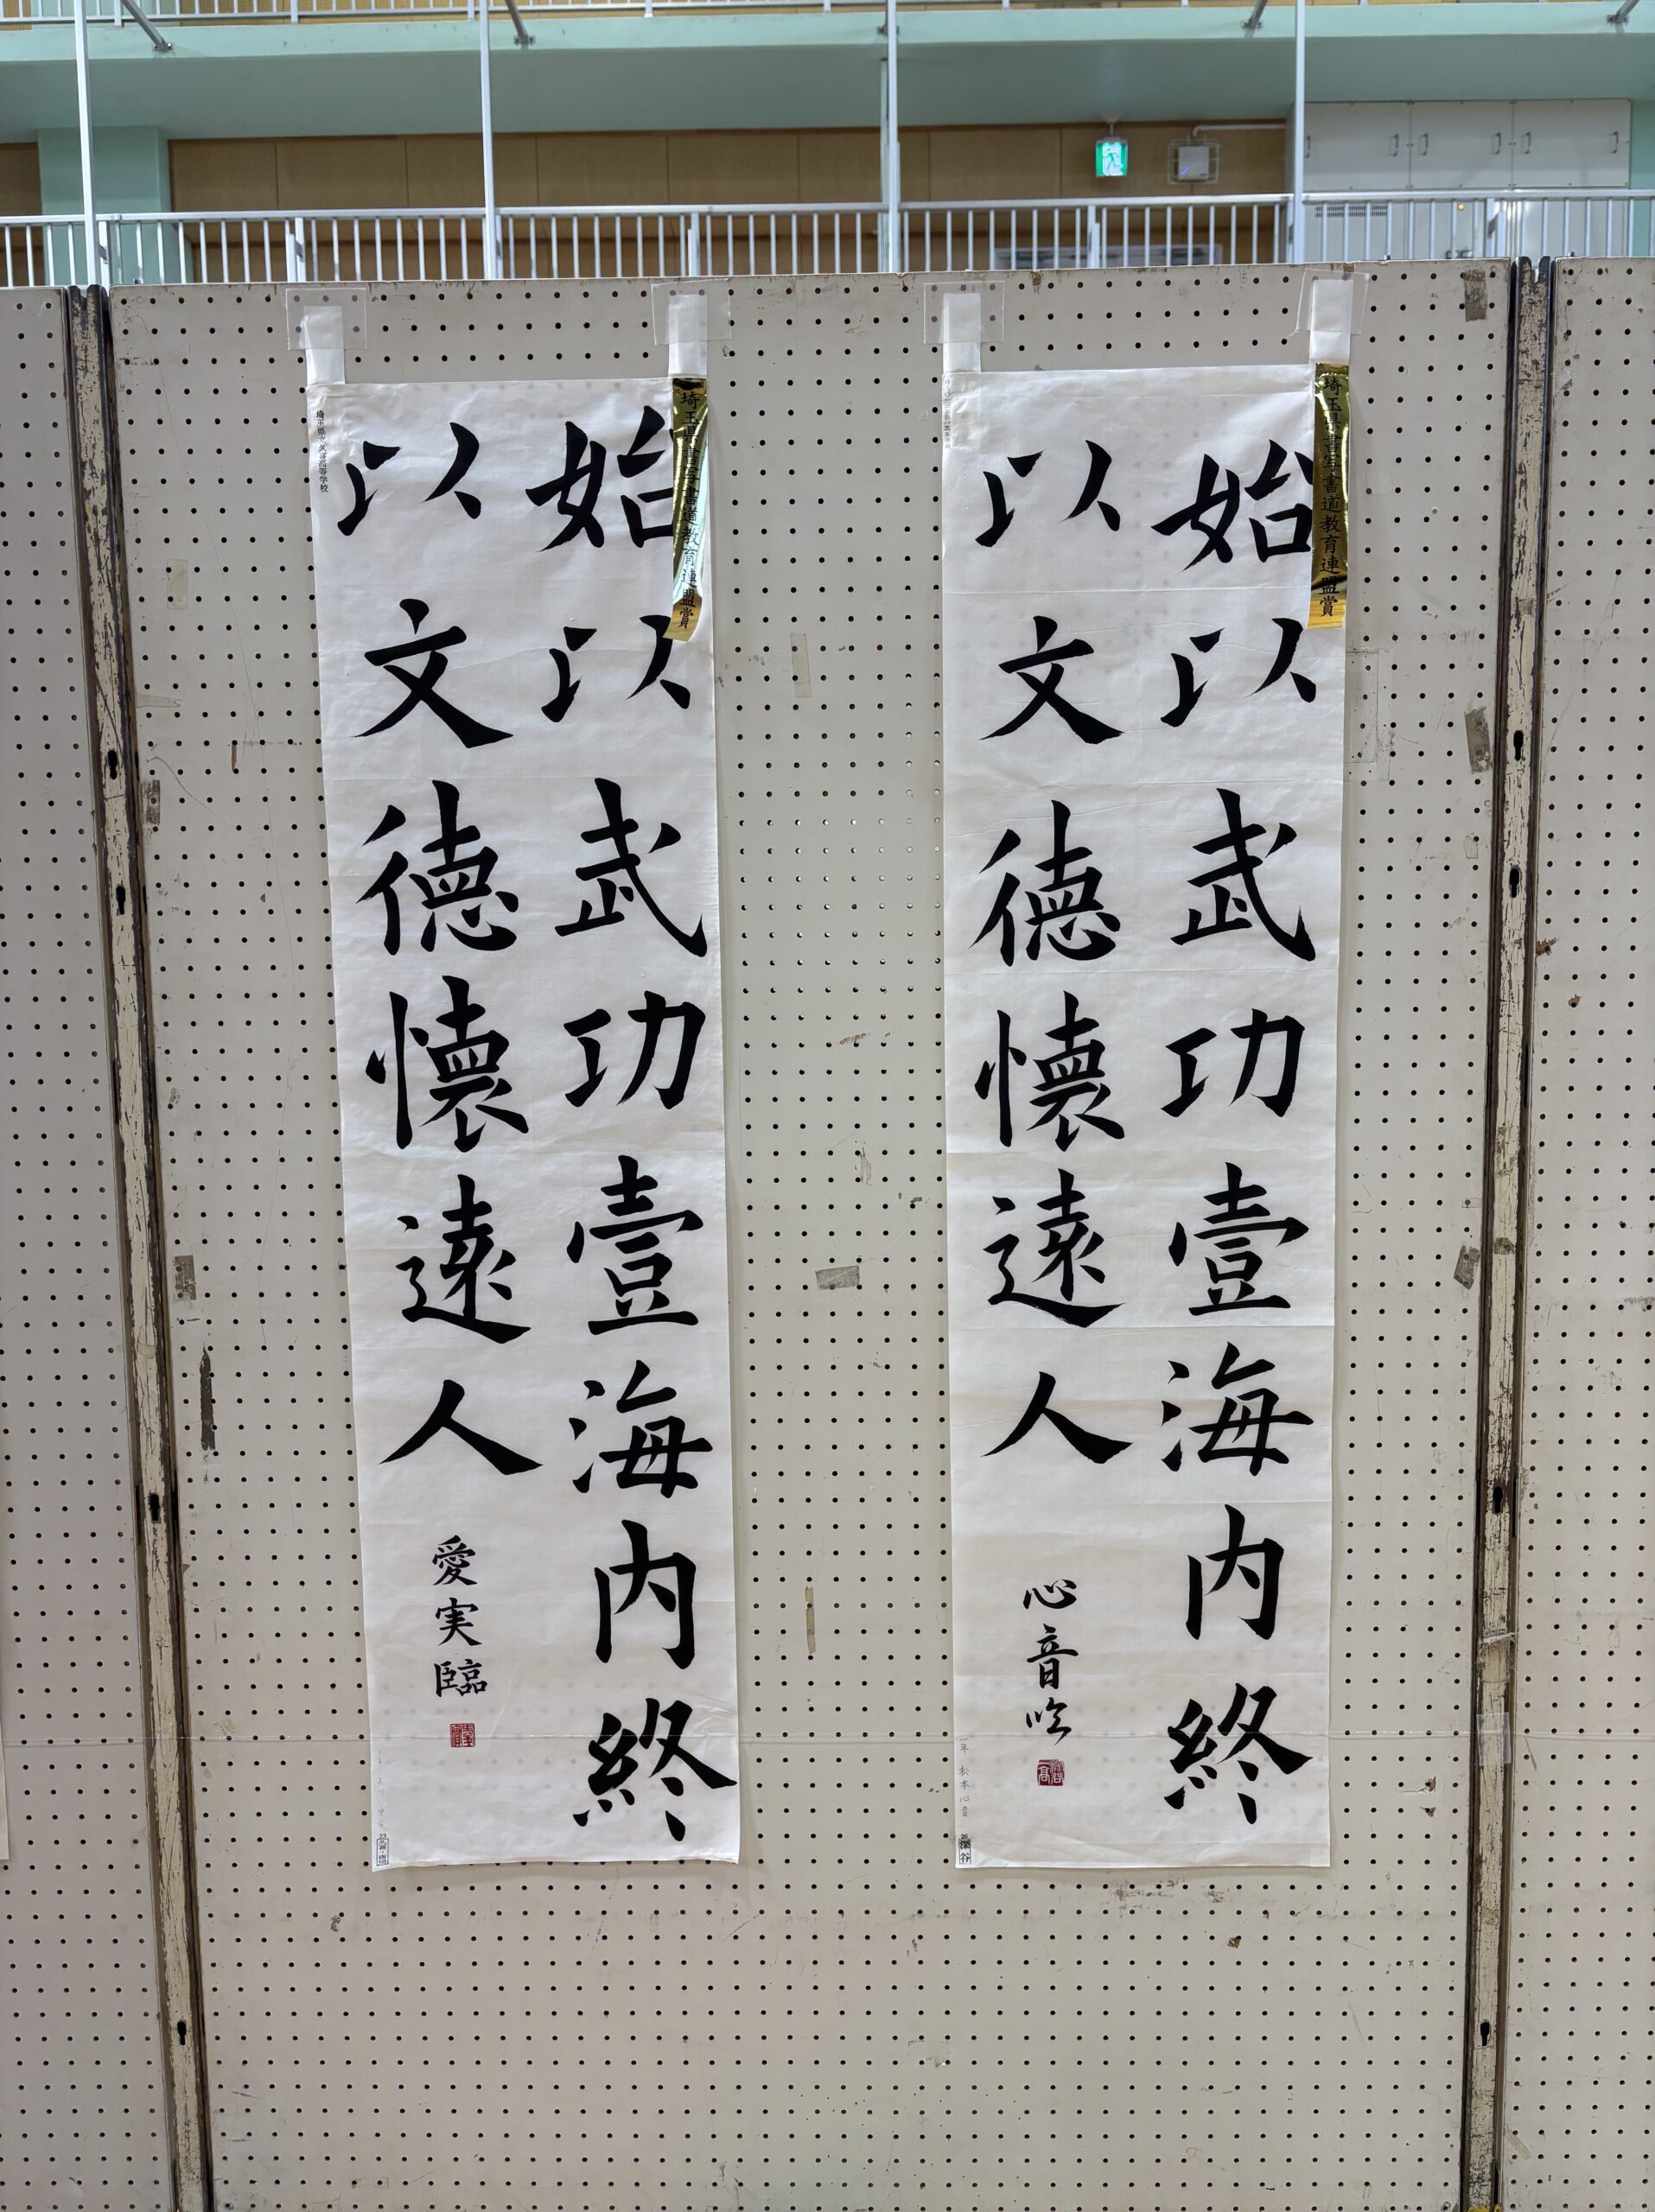 埼玉県書写書道教育連盟賞
始以武功壹海内終
以文徳懐遠人
心音臨
一年 松本心音
深谷
埼玉県書写書道教育連盟賞
始以武功壹海内終
以文徳懐遠人
愛実臨